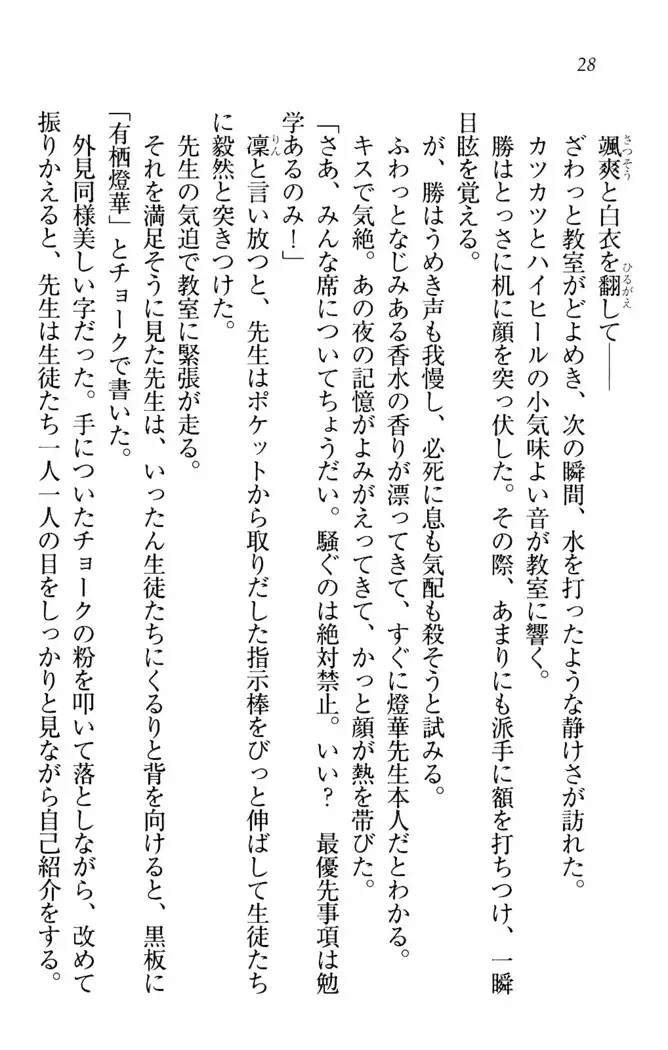 28
颯爽と白衣を翻して――
ざわっと教室がどよめき、次の瞬間、水を打ったような静けさが訪れた。
カツカツとハイヒールの小気味よい音が教室に響く。
勝はとっさに机に顔を突っ伏した。その際、あまりにも派手に額を打ちつけ、一瞬
目眩を覚える。
が、勝はうめき声も我慢し、必死に息も気配も殺そうと試みる。
ふわっとなじみある香水の香りが漂ってきて、すぐに燈華先生本人だとわかる。
キスで気絶。あの夜の記憶がよみがえってきて、かっと顔が熱を帯びた。
「さあ、みんな席についてちょうだい。騒ぐのは絶対禁止。いい?　最優先事項は勉
学あるのみ!」
凜と言い放つと、先生はポケットから取りだした指示棒をびっと伸ばして生徒たち
に毅然と突きつけた。
先生の気迫で教室に緊張が走る。
それを満足そうに見た先生は、いったん生徒たちにくるりと背を向けると、黒板に
「有栖燈華」とチョークで書いた。
外見同様美しい字だった。手についたチョークの粉を叩いて落としながら、改めて
振りかえると、先生は生徒たち一人一人の目をしっかりと見ながら自己紹介をする。